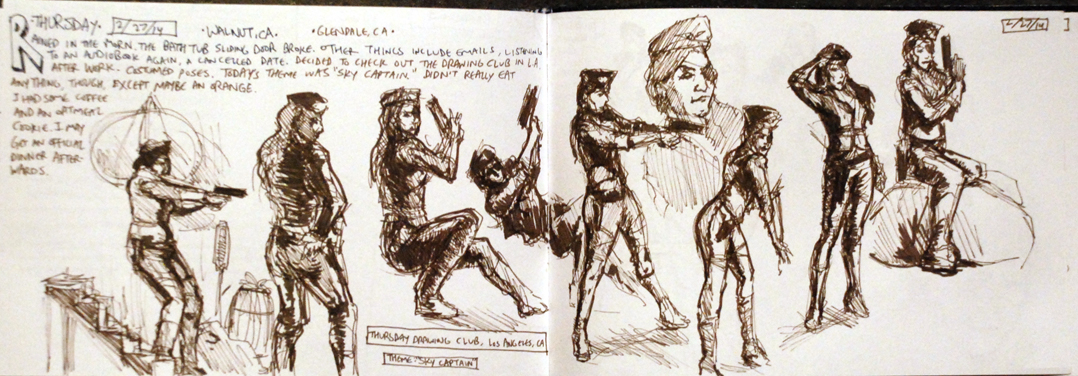 THURSDAY. 2/27/14 · WALNUT, CA. · GLENDALE, CA ·
RAINED IN THE MORN. THE BATH TUB SLIDING DOOR BROKE. OTHER THINGS INCLUDE EMAILS, LISTENING
TO AN AUDIOBOOK AGAIN, A CANCELLED DATE. DECIDED TO CHECK OUT THE DRAWING CLUB IN L.A.
AFTER WORK. COSTUMED POSES. TODAY'S THEME WAS "SKY CAPTAIN." DIDN'T REALLY EAT
ANYTHING, THOUGH, EXCEPT MAYBE AN ORANGE.
I HAD SOME COFFEE
AND AN OATMEAL
COOKIE. I MAY
GET AN OFFICIAL
DINNER AFTER-
WARDS.
THURSDAY DRAWING CLUB, LOS ANGELES, CA
THEME: "SKY CAPTAIN"
2/27/14